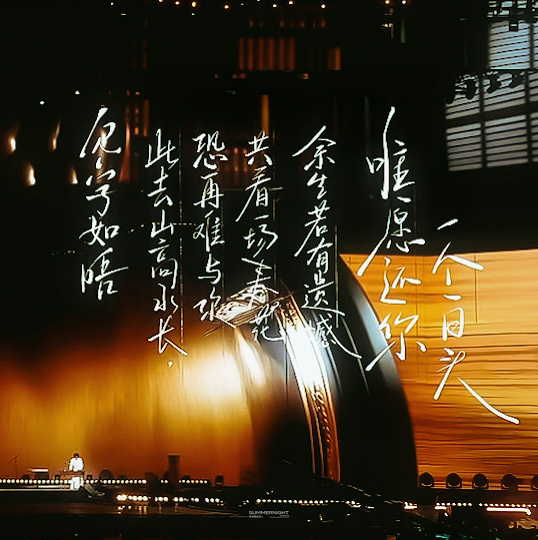 见字如晤
此去山高水长，
恐再难与你
共看一场春花
余生若有遗憾
唯愿还你
一个一日头
SUMMERNIGHT